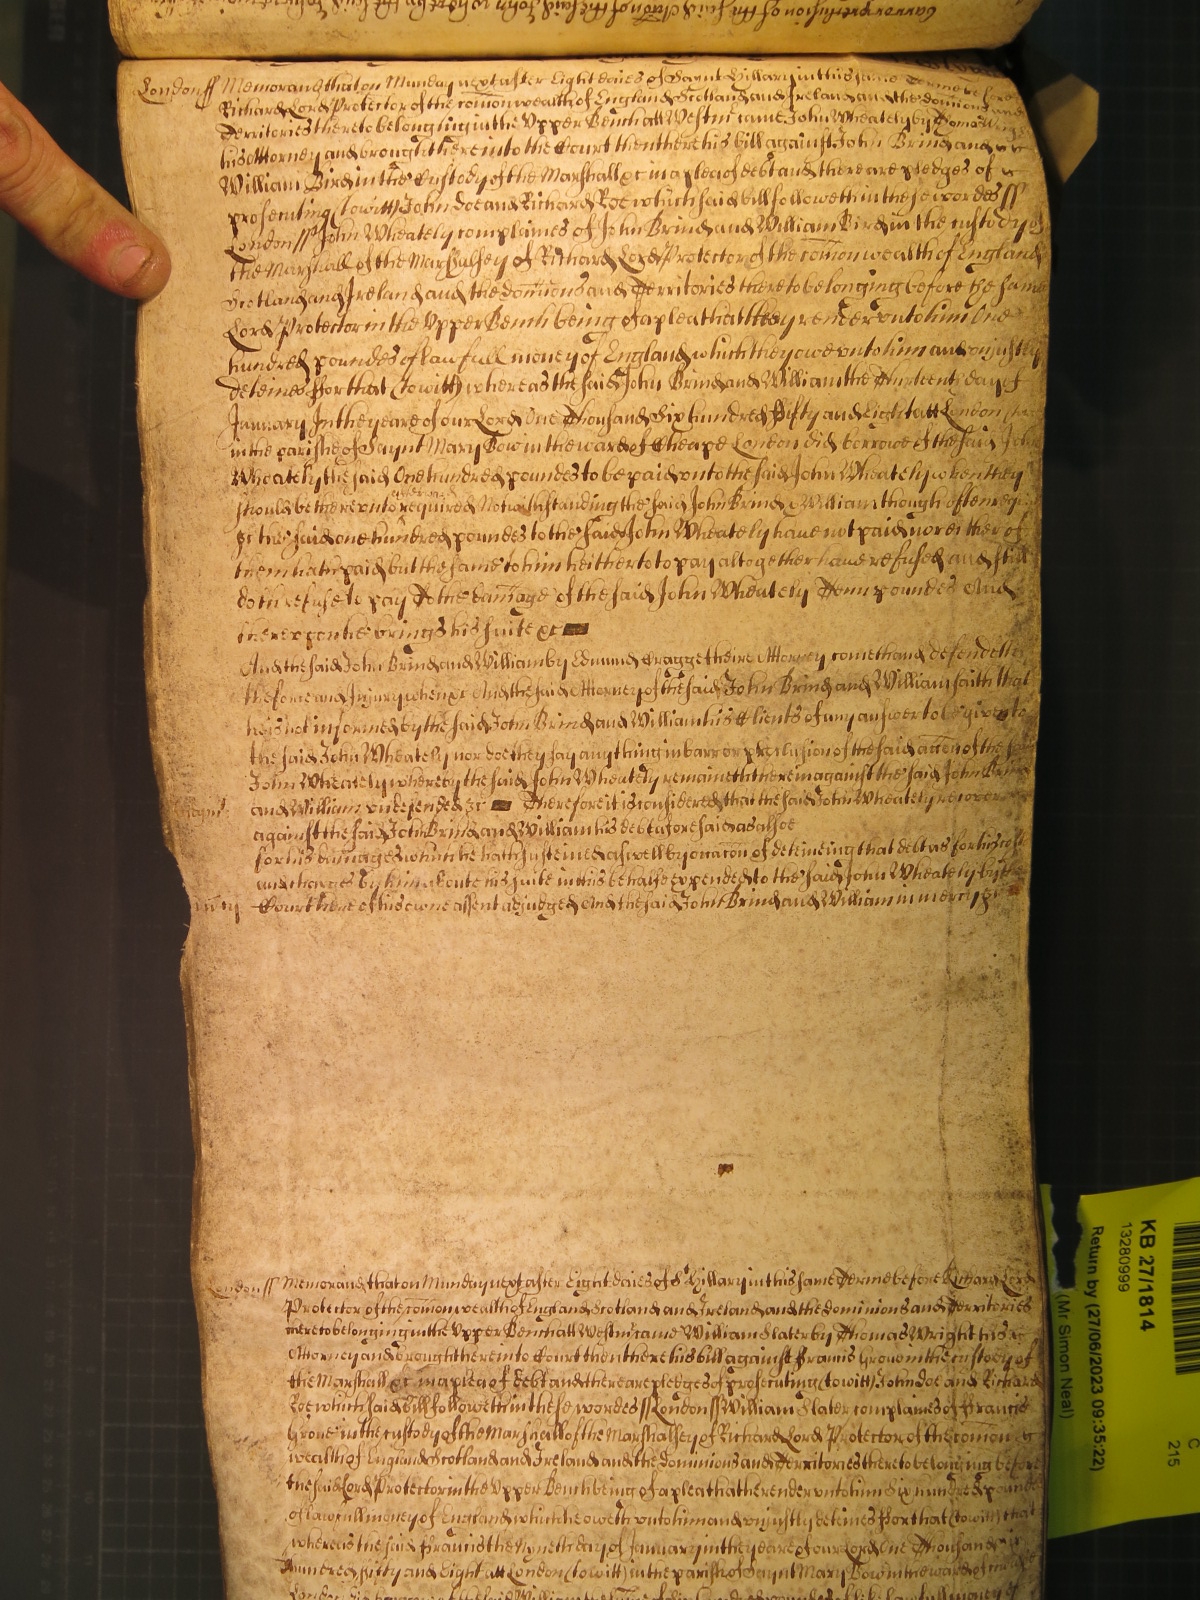 London ss Memorand that on Munday next after Eight daies of Saynt Hillary in this same Terme before
Richard Lord Protector of the comonwealth of England Scotland and Ireland and the dominions and
Territories thereto belonging in the Upper Bench att Westmr came John Wheately by
his Attorney and brought here into the Court then there his bill against John Brind and
William Bird in the Custody of the Marshall &c in a plea of debt and there are pledges of
prosecuting (towitt) John Doe and Richard Roe which said bill followeth in these wordes ss
London ss John Wheately complaines of John Brind and William Bird in the custody of
the Marshall of the Marshalsey of Richard Lord Protector of the comonwealth of England
Scotland and Ireland and the dominions and Territories thereto belonging before the same
Lord Protector in the Upper Bench being of a plea that they render unto him One
hundred poundes of lawfull money of England which they owe unto him and unjustly
deteines For that (towitt) whereas the said John Brind and William the Thirteenth day of
January In the yeare of our Lord One Thousand Six hundred Fifty and Eight att London
in the parishe of Saynt Mary Bow in the ward of Cheape London did borrowe of the said John
Wheately the said One hundred poundes to be paid unto the said John Wheately when they
should be thereunto required Notwithstanding the said John Brind & William though often
the said one hundred poundes to the said John Wheately have not paid nor either of
them hath paid but the same to him hitherto to pay altogether have refused and still
doth refuse to pay To the damage of the said John Wheately Tenn poundes And
thereupon he brings his suite &c
And the said John Brind and William by Edmund Cragge theire Attorney cometh and defendeth
the force and Injury when &c And the said Attorney of the said John Brind and William saith that
he is not informed by the said John Brind and William his Clients of any answer to be given to
the said John Wheately nor doe they say any thing in barr or preclusion of the said accon of the said
John Wheately whereby the said John Wheately remaineth therein against the said John Brind
and William undefended &c Therefore it is considered that the said John Wheately recover
against the said John Brind and William his debt aforesaid as alsoe
for his damages which he hath susteined as well by occacon of deteineing that debt as for his costs
and charges by him aboute his suite in this behalfe expended to the said John Wheately by the
Court here of his owne assent adjudged And the said John Brind and William in mercy &c
London ss Memorand that on Munday next after Eight daies of St Hillary in this same Terme before Richard Lord
Protector of the comonwealth of England Scotland and Ireland and the dominions and Territories
thereto belonging in the Upper Bench att Westmr came William Slater by Thomas Wright his
Attorney and brought here into Court then there his bill against Francis Grove in the custody of
the Marshall &c in a plea of debt and there are pledges of prosecuting (towitt) John Doe and Richard
Roe which said bill followeth in these wordes ss London ss William Slater complaines of Francis
Grove in the custody of the Marshall of the Marshalsey of Richard Lord Protector of the comon
wealth of England Scotland and Ireland and the dominions and Territories thereto belonging before
the said Lord Protector in the Upper Bench being of a plea that he render unto him Six hundred pounds
of lawfull money of England which he oweth unto him and unjustly deteines For that (towitt) that
whereas the said Francis the Nyneth day of January in the yeare of our Lord One Thousand six
hundred fifty and Eight att London (towitt) in the parish of Saynt Mary Bow in the ward of
KB 27/1814
13280999
Return by (27/06/2023 09:35:22)
(Mr Simon Neal)
C
215